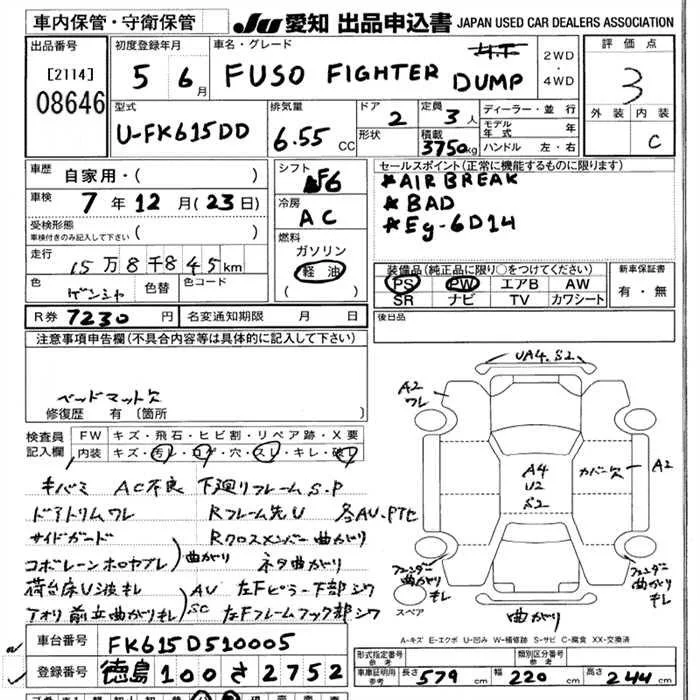 車内保管・守衛保管 JU 愛知 出品申込書 JAPAN USED CAR DEALERS ASSOCIATION
出品番号 初度登録年月 車名・グレード 2WD・4WD 評価点
[2114] 5 6月 FUSO FIGHTER DUMP 3
08646 外装 内装
型式 排気量 ドア 2 定員 3人 ディーラー・並行 C
U-FK615DD 6.55 CC 形状 積載 3750kg モデル年式 年
ハンドル 左・右
車歴 自家用・( ) シフト F6 セールスポイント(正常に機能するものに限ります)
車検 7年12月(23日) 冷房 AC *AIR BREAK
受検形態 車検付きのみ記入して下さい ( ) *BAD
燃料 ガソリン *Eg-6D14
走行 15万8千845km 軽油 ( )
装備品(純正品に限り○をつけてください) 新車保証書
色 ゲンシャ 色替 色コード PS PW エアB AW 有・無
SR ナビ TV カワシート
R券 7230円 名変通知期限 月 日 後日品
注意事項申告欄(不具合内容等は具体的に記入して下さい)
ベッドマット欠
修復歴 有 〔箇所 〕
検査員記入欄 FW キズ・飛石・ヒビ割・リペア跡・X要
内装 キズ・汚レ・コゲ・穴・スレ・キレ・破レ
キバミ AC不良 下廻りフレームS.P
ドアトリムワレ Rフレーム先U
サイドガード Rクロスメンバー曲がり
曲がり ネタ曲がり
荷台床U 左Fピラー下部シワ
AU SC
アオリ 曲がりキレ 左Fフレームフック部シワ
UA4.S2
A2 ワレ
A4 U2 S2
カバー欠 A2
フェンダー曲がりキレ
フェンダー曲がりキレ
スペア
曲がり
A-キズ E-エクボ U-凹み W-補修跡 S-サビ C-腐食 XX-交換済
車台番号 FK615D510005
登録番号 徳島100さ2752
形式指定番号 参考 類別区分番号 参考
車庫証明用 参考 長さ 579 cm 幅 220 cm 高さ 244 cm